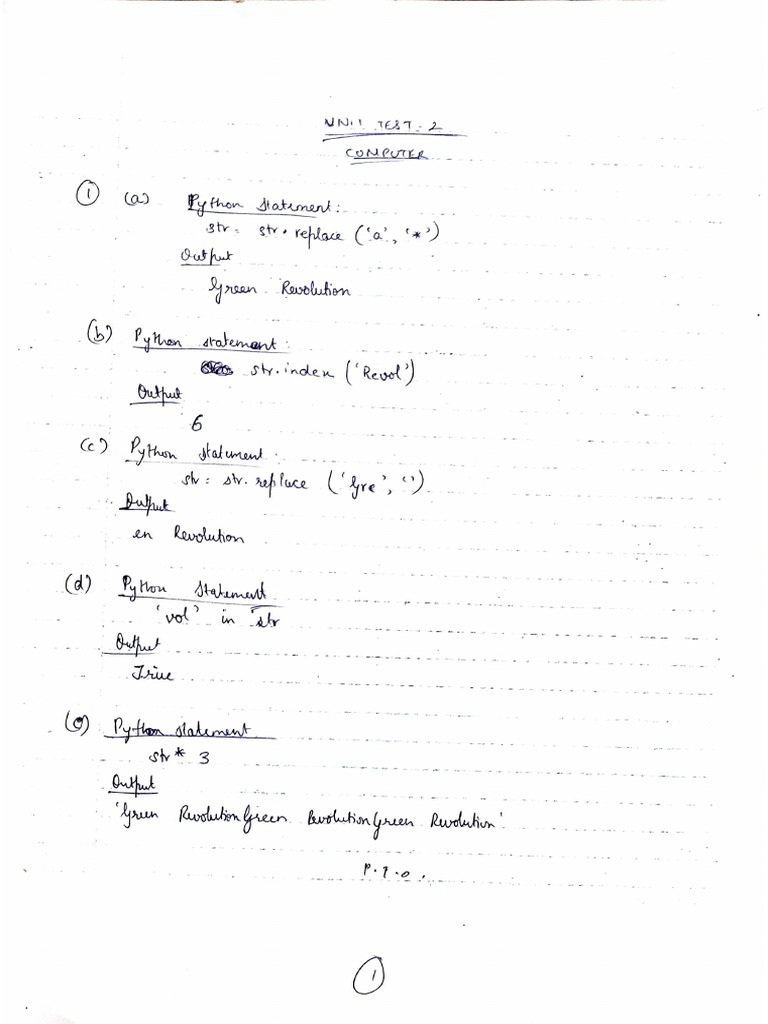 TEST-2
COMPUTER
① (a) Python Statement:
str = str.replace('a', '*')
Output
Green Revolution
(b) Python statement:
str.index('Revol')
Output
6
(c) Python statement.
str = str.replace('Gre', '').
Output
en Revolution
(d) Python Statement
'vol' in str
Output
True
(e) Python statement
str * 3
Output
'Green RevolutionGreen RevolutionGreen Revolution'.
P.T.O.
①